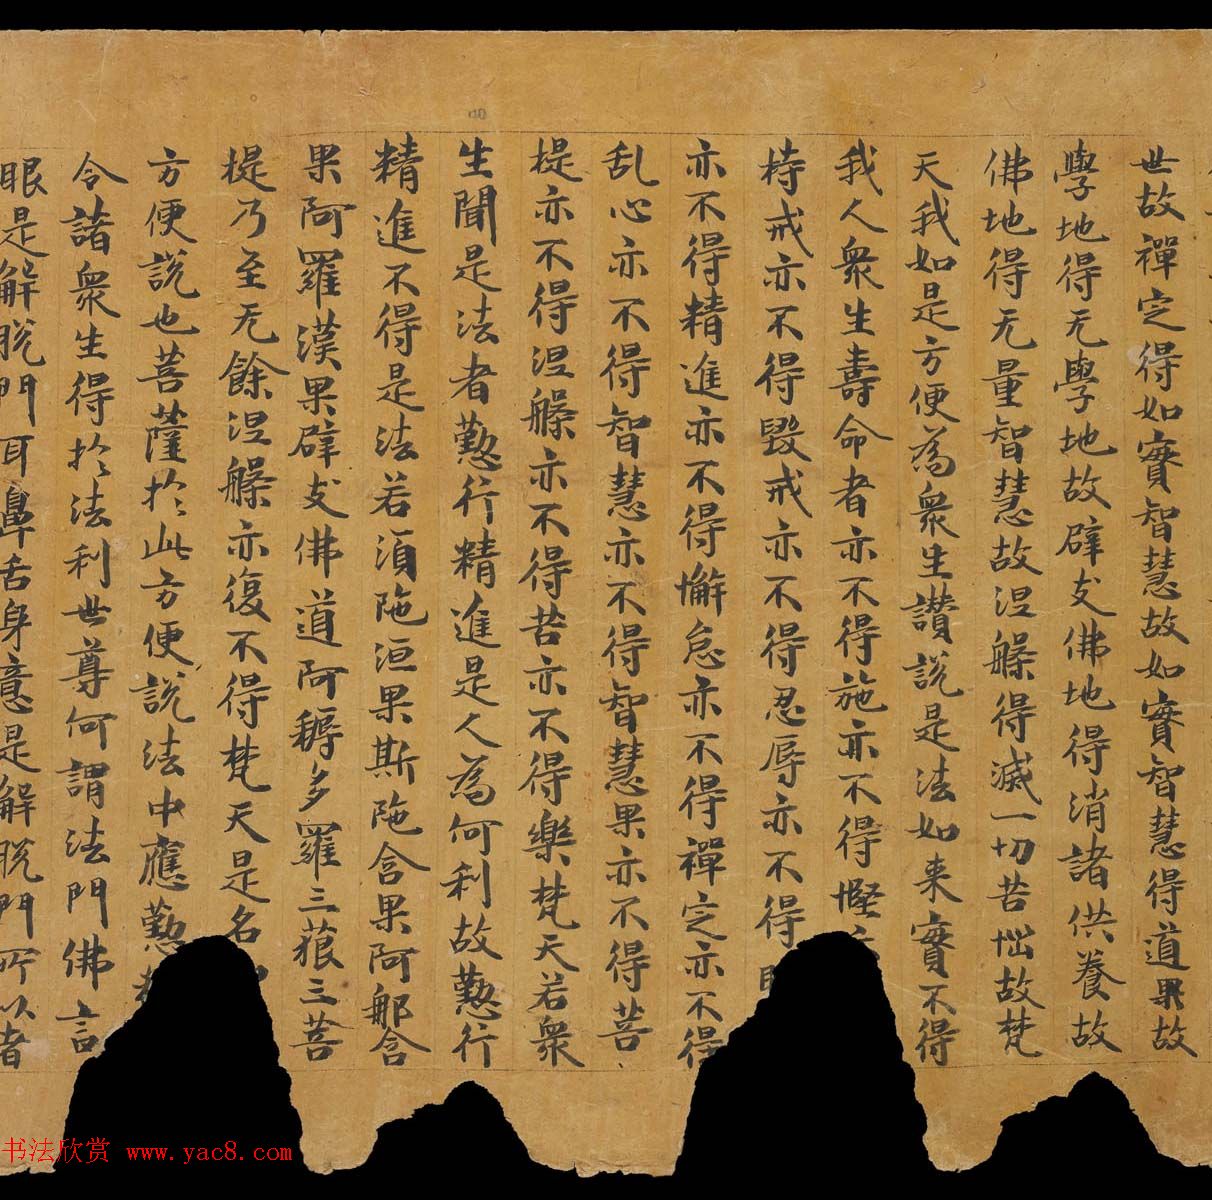 世故禪定得如實智慧故如實智慧得道果故
學地得无學地故辟支佛地得消諸供養故
佛地得无量智慧故涅槃得滅一切苦惱故梵
天我如是方便為衆生讚說是法如来實不得
我人衆生壽命者亦不得施亦不得慳
持戒亦不得毀戒亦不得忍辱亦不得
亦不得精進亦不得懈怠亦不得禪定亦不得
乱心亦不得智慧亦不得智慧果亦不得菩
提亦不得涅槃亦不得苦亦不得樂梵天若衆
生聞是法者懃行精進是人為何利故懃行
精進不得是法若湏陁洹果斯陁含果阿那含
果阿羅漢果辟支佛道阿耨多羅三藐三菩
提乃至无餘涅槃亦復不得梵天是名
方便說也菩薩扵此方便說法中應懃
令諸衆生得扵法利世尊何謂法門佛言
眼是解脫門耳鼻舌身意是解脫門所以者
书法欣赏 www.yac8.com